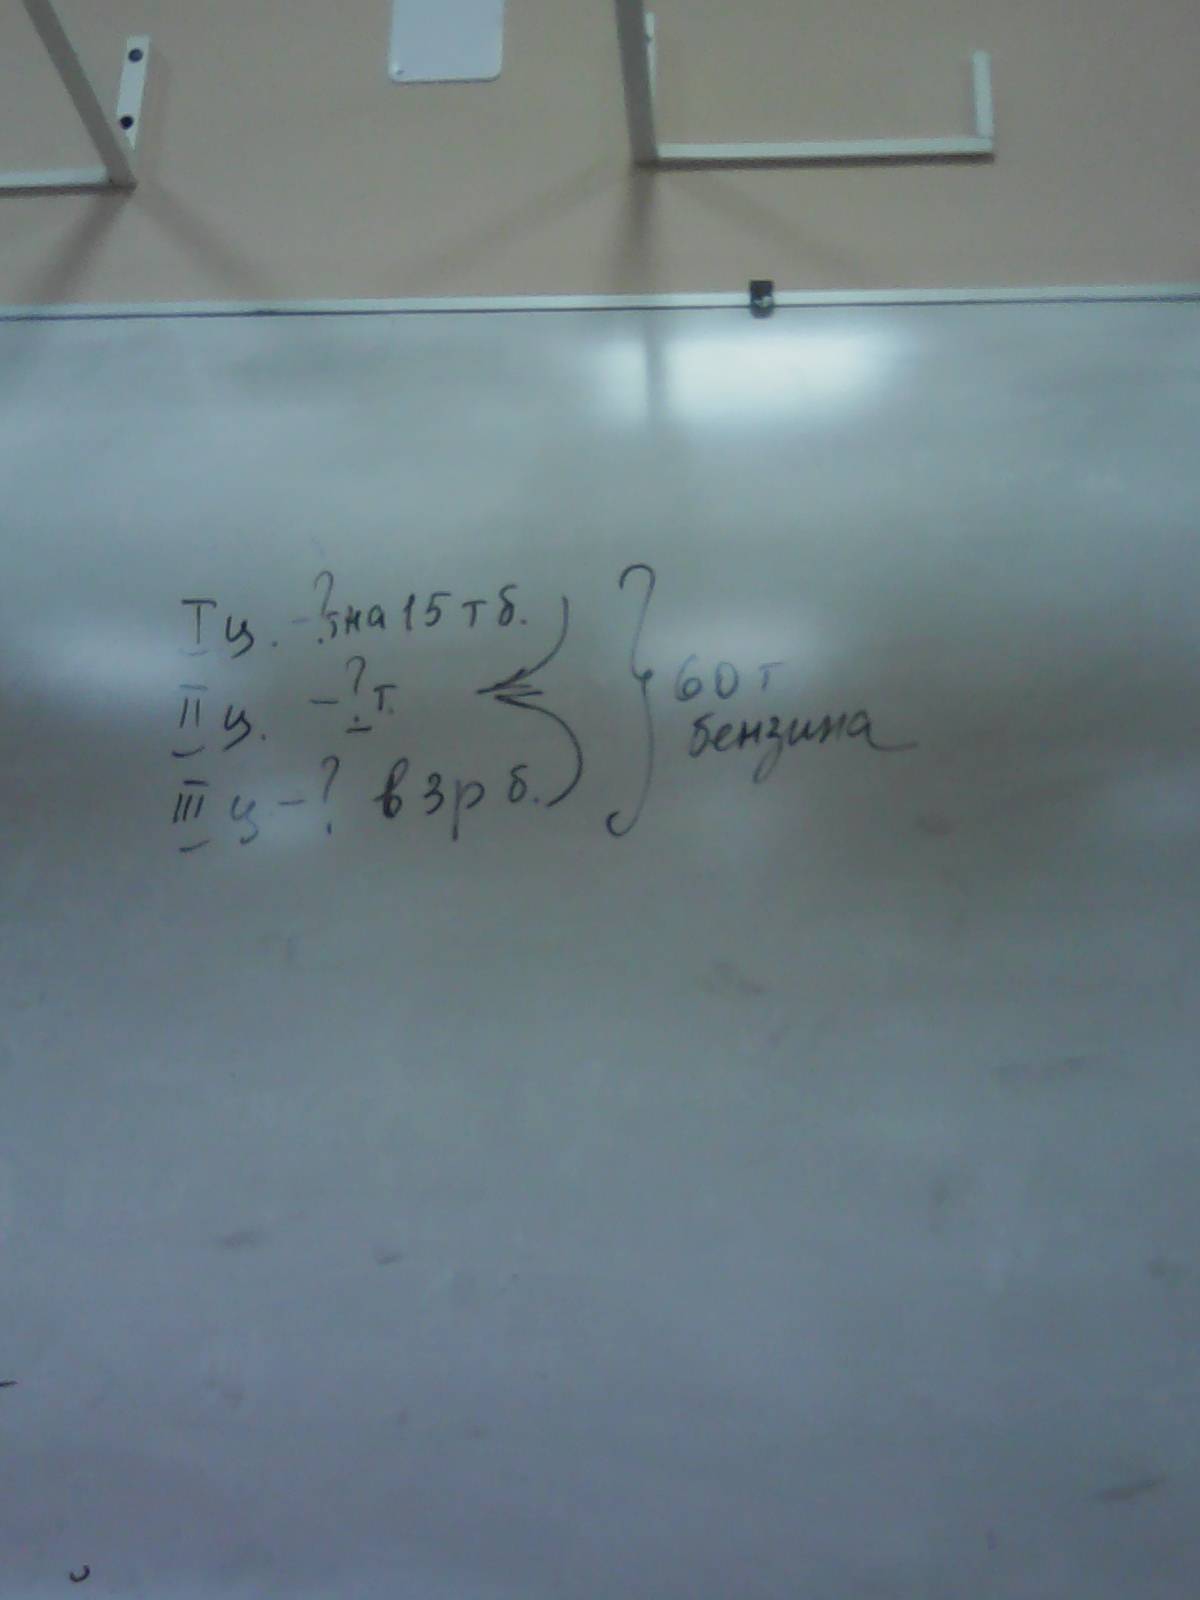 I ц. - ? т на 15 т б.
II ц. - ? т.
III ц - ? в 3 р б.
60 т
бензина